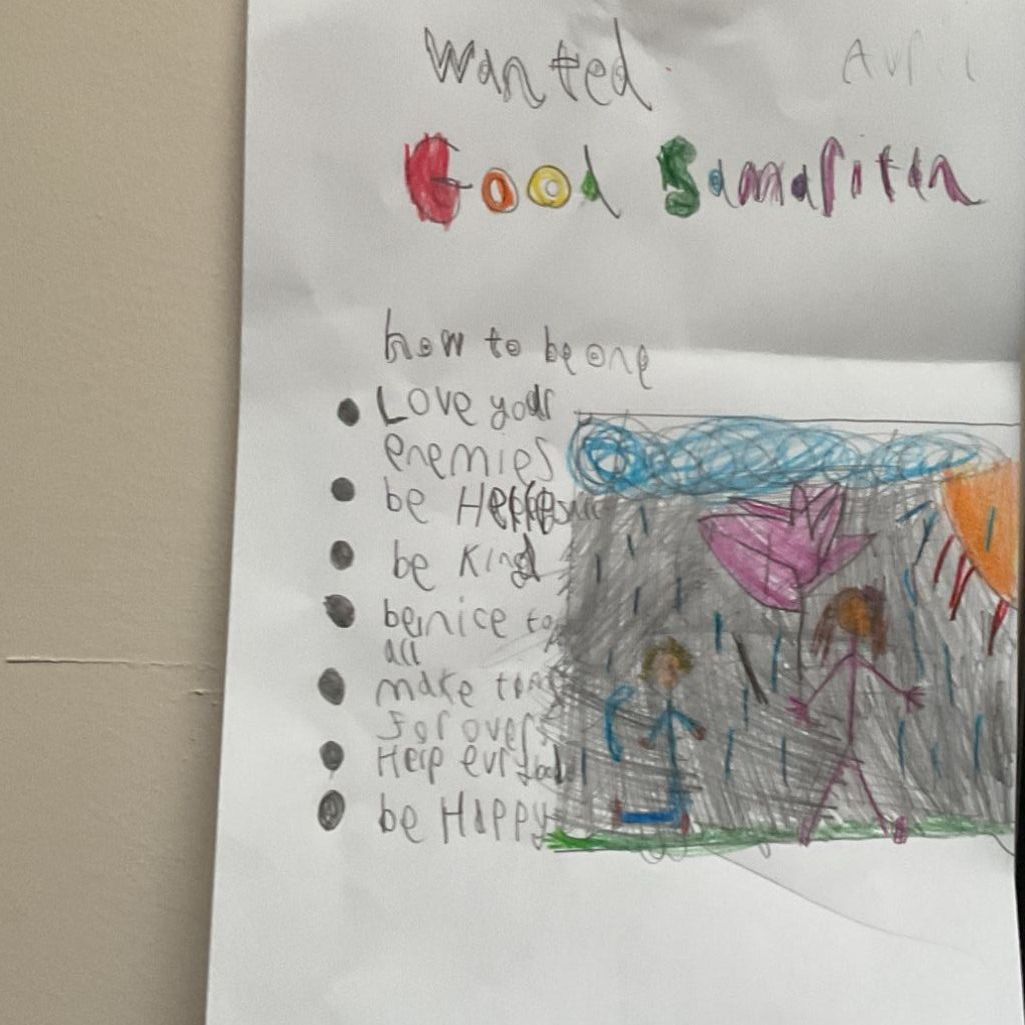 Wanted
Avril
Good Samaritan
how to be one
Love your
enemies
be
be kind
be nice to
all
make
For overs
Help
be Happy